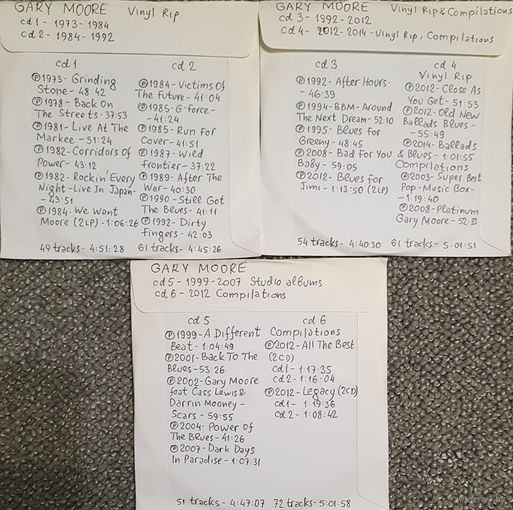 GARY MOORE Vinyl Rip
cd 1 - 1973-1984
cd 2 - 1984-1992
cd 1
℗1973-Grinding
Stone - 48:42
℗1978-Back On
The Streets-37:53
℗1981-Live At The
Markee-51:24
℗1982-Corridors Of
Power-43:12
℗1982-Rockin' Every
Night-Live In Japan-
-43:51
℗1984-We Want
Moore (2LP)-1:06:26
49 tracks-4:51:28
cd 2
℗1984-Victims Of
The Future-41:04
℗1985-G-force-
-41:24
℗1985-Run For
Cover-41:51
℗1987-Wild
Frontier-37:22
℗1989-After The
War-40:30
℗1990-Still Got
The Blues-41:11
℗1992-Dirty
Fingers-42:03
61 tracks-4:45:26
GARY MOORE Vinyl Rip & Compilations
cd 3 - 1992-2012
cd 4 - 2012-2014-Vinyl Rip, Compilations
cd 3
℗1992-After Hours-
-46:39
℗1994-BBM-Around
The Next Dream-52:10
℗1995-Blues for
Greeny-48:45
℗2008-Bad For You
Baby-59:05
℗2012-Blues for
Jimi-1:13:50 (2LP)
54 tracks-4:40:30
cd 4
Vinyl Rip
℗2012-Close As
You Get-51:53
℗2012-Old New
Ballads Blues-
-55:49
℗2014-Ballads
& Blues-1:01:55
Compilations
℗2003-Super Best
Pop-Music Box-
-1:19:40
℗2008-Platinum
Gary Moore-52:33
61 tracks-5:01:51
GARY MOORE
cd 5 - 1999-2007 Studio albums
cd 6 - 2012 Compilations
cd 5
℗1999-A Different
Beat-1:04:49
℗2001-Back To The
Blues-53:26
℗2002-Gary Moore
feat Cass Lewis &
Darrin Mooney-
Scars-59:55
℗2004-Power Of
The Blues-41:26
℗2007-Dark Days
In Paradise-1:07:31
51 tracks-4:47:07
cd 6
Compilations
℗2012-All The Best
(2CD)
cd 1-1:17:35
cd 2-1:16:04
℗2012-Legacy (2CD)
cd 1-1:19:36
cd 2-1:08:42
72 tracks-5:01:58